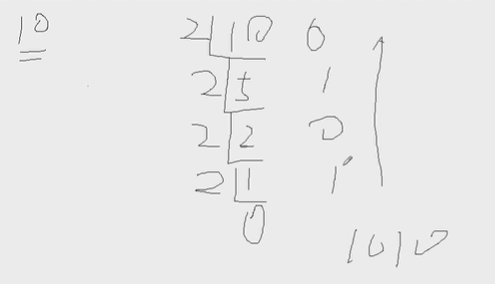 10 2 10 0
2 5 1
2 2 0
2 1 1
0
1010